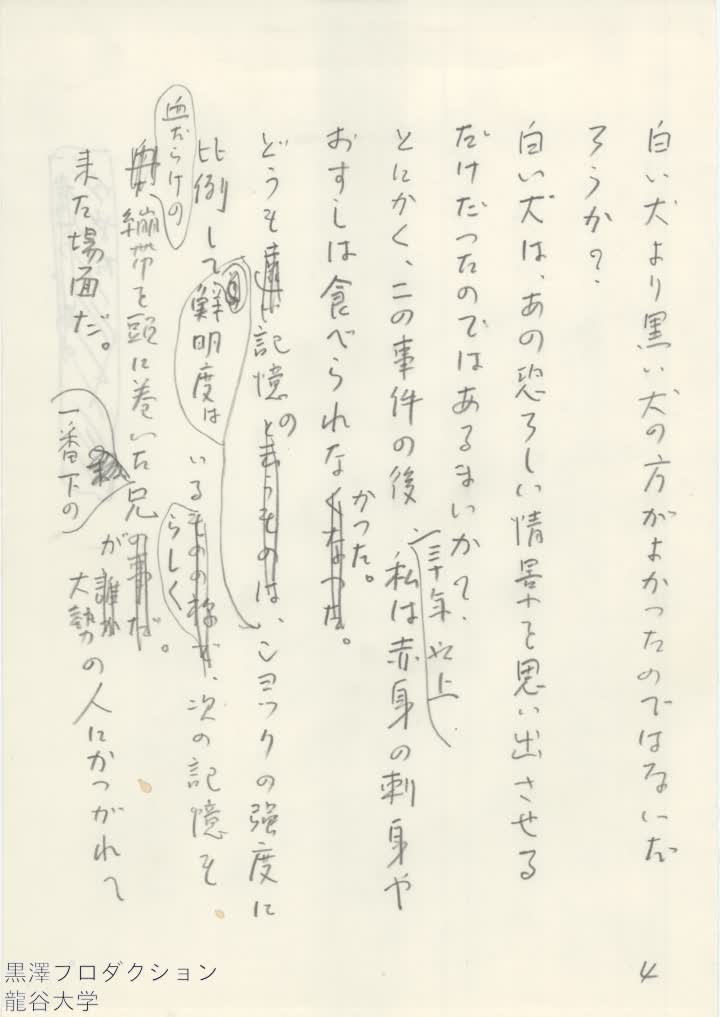 白い犬より黒い犬の方がよかったのではないだ
ろうか？
白い犬は、あの恐ろしい情景を思い出させる
だけだったのではあるまいか？
とにかく、この事件の後
三十年以上
私は赤身の刺身や
おすしは食べられなくなった。
かった。
どうも記憶というものは、ショックの強度に
の
比例して
鮮明度は
いるものの様だ、次の記憶も
らしく
血だらけの
繃帯を頭に巻いた兄の事だ。
一番下の
が
誰か
大勢の人にかつがれて
来た場面だ。
4
黒澤プロダクション
龍谷大学